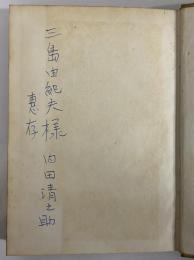 三島由紀夫様
恵存
内田清之助